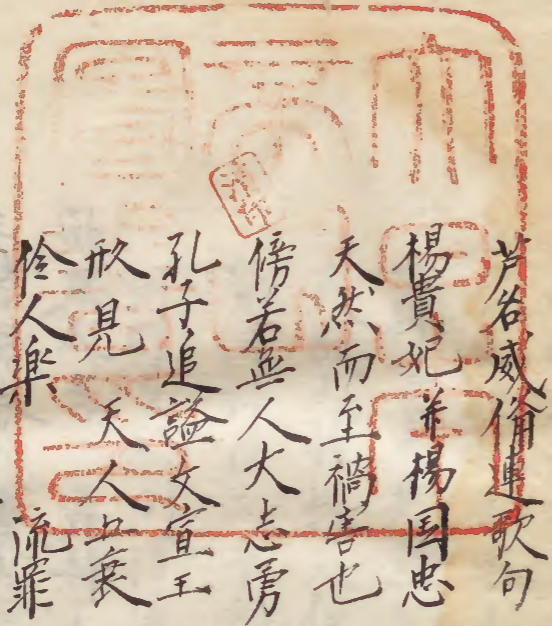 芦名威脩連歌句
楊貴妃 并楊国忠
天然而至禍害也
傍若無人大志勇
孔子追謚文宣王
形見 天人五衰
伶人楽 流罪